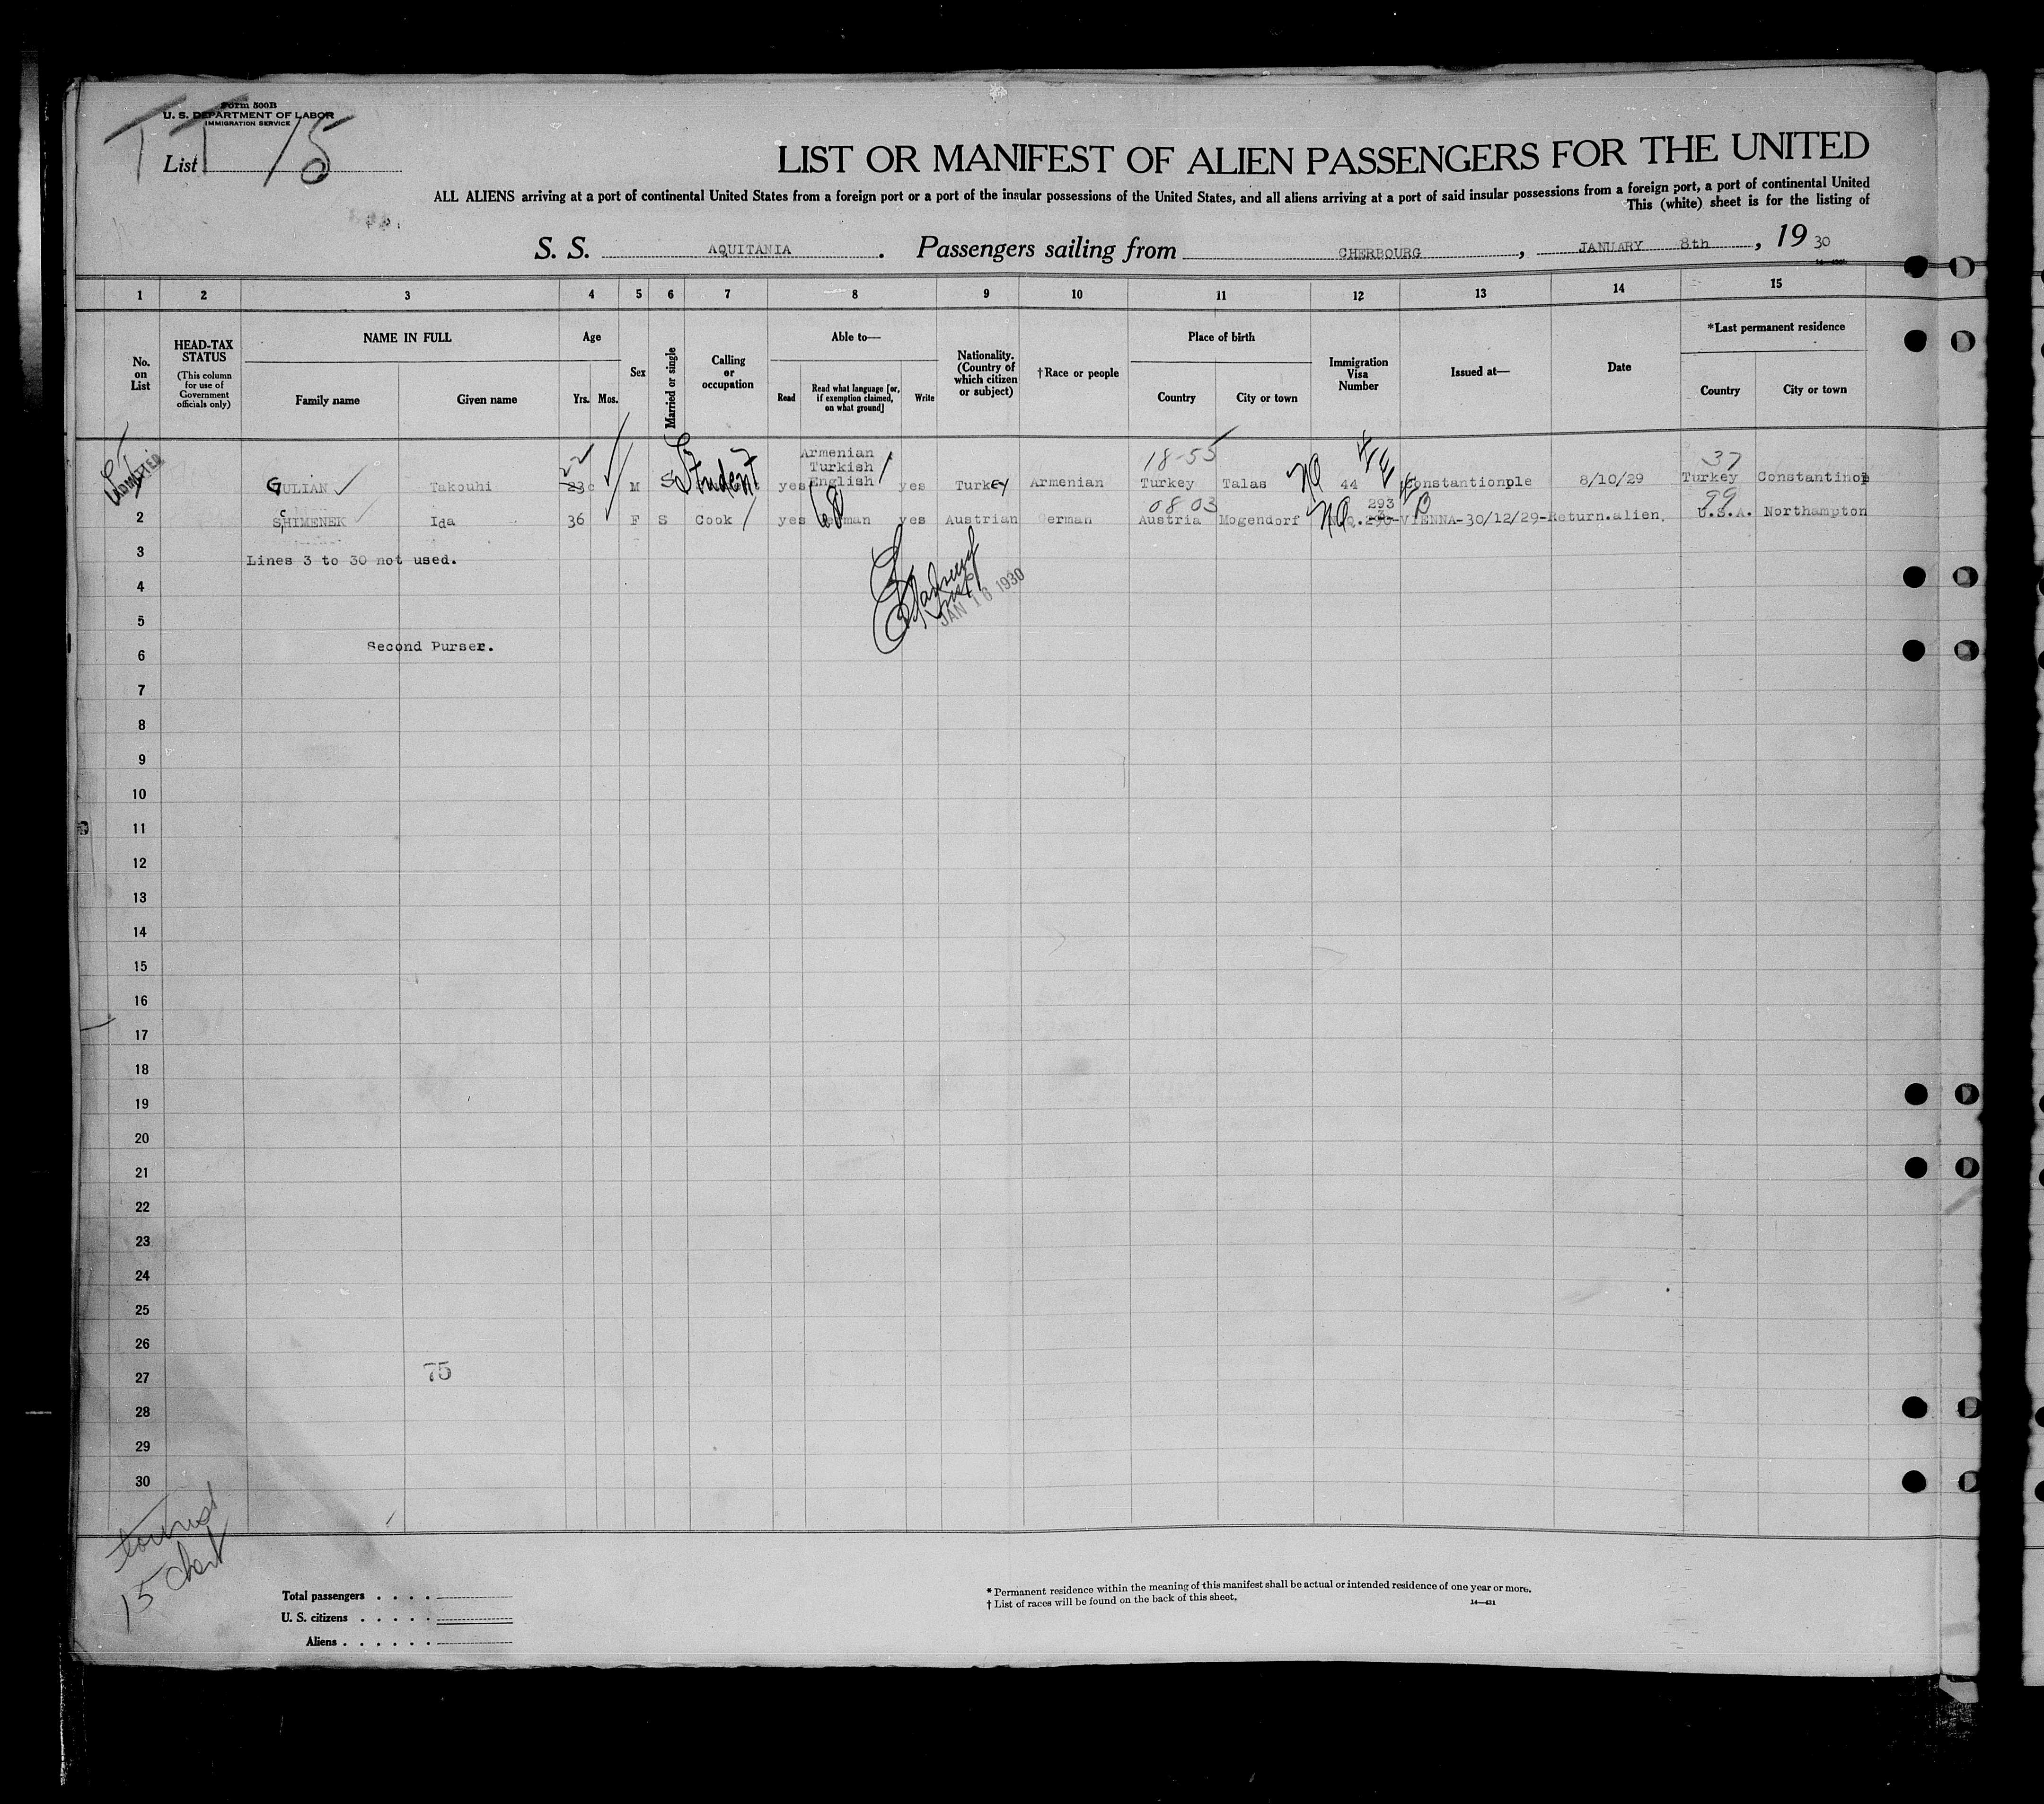 Form 500B
U. S. DEPARTMENT OF LABOR
IMMIGRATION SERVICE
List
15
LIST OR MANIFEST OF ALIEN PASSENGERS FOR THE UNITED
ALL ALIENS arriving at a port of continental United States from a foreign port or a port of the insular possessions of the United States, and all aliens arriving at a port of said insular possessions from a foreign port, a port of continental United
This (white) sheet is for the listing of
S. S. AQUITANIA . Passengers sailing from CHERBOURG , JANUARY 8th , 19 30
1 2 3 4 5 6 7 8 9 10 11 12 13 14 15
No. on List
HEAD-TAX STATUS
(This column for use of Government officials only)
NAME IN FULL
Family name Given name
Age
Yrs. Mos.
Sex
Married or single
Calling or occupation
Able to—
Read
Read what language [or, if exemption claimed, on what ground]
Write
Nationality. (Country of which citizen or subject)
†Race or people
Place of birth
Country City or town
Immigration Visa Number
Issued at—
Date
*Last permanent residence
Country City or town
ADMITTED
22 Armenian 18-55 37
Turkish
GULIAN Takouhi 23 M S Student yes English yes Turkey Armenian Turkey Talas NQ 44 Constantionple 8/10/29 Turkey Constantinop
08 03 293 99
2 SCHIMENEK Ida 36 F S Cook yes German yes Austrian German Austria Mogendorf NQ VIENNA-30/12/29-Return.alien. U.S.A. Northampton
3 Lines 3 to 30 not used.
4
JAN 16 1930
5
6 Second Purser.
7
8
9
10
11
12
13
14
15
16
17
18
19
20
21
22
23
24
25
26
27 75
28
29
30
tourist
15 cher
Total passengers . . . .
U. S. citizens . . . . .
Aliens . . . . . .
* Permanent residence within the meaning of this manifest shall be actual or intended residence of one year or more.
† List of races will be found on the back of this sheet.
14—431